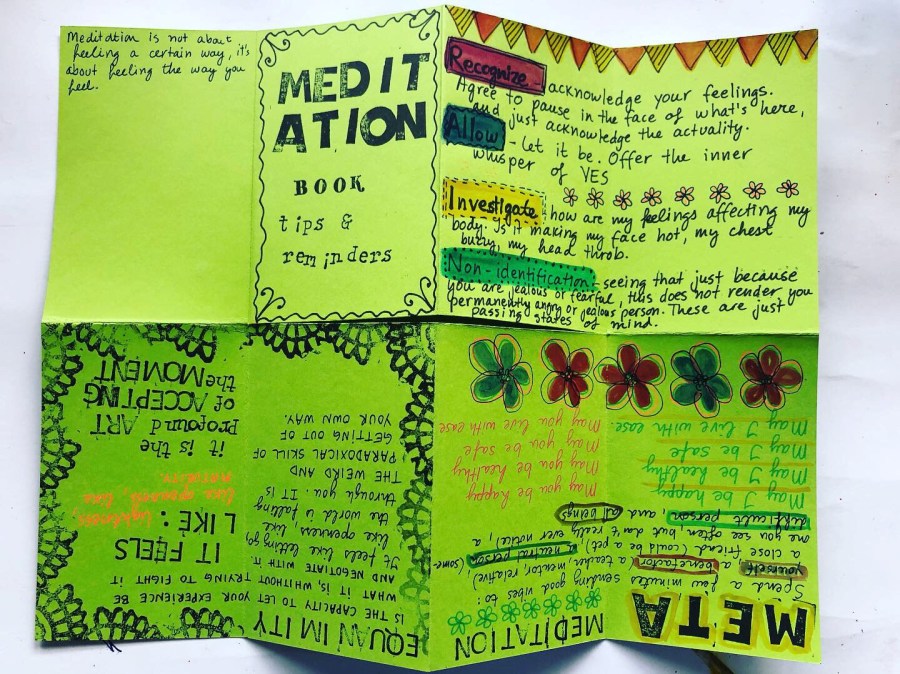 Meditation is not about
feeling a certain way, it's
about feeling the way you
feel.
MEDIT
ATION
BOOK
tips &
reminders
Recognize acknowledge your feelings.
Agree to pause in the face of what's here,
and just acknowledge the actuality.
Allow - let it be. Offer the inner
whisper of YES
Investigate how are my feelings affecting my
body. Is it making my face hot, my chest
buzzy, my head throb.
Non-identification - seeing that just because
you are jealous or fearful, this does not render you
permanently angry or jealous person. These are just
passing states of mind.
META
MEDITATION
Spend a few minutes sending good vibes to:
yourself, a benefactor (a teacher, mentor, relative)
a close friend (could be a pet), a neutral person (some
one you see often but don't really ever notice), a
difficult person, and all beings
May I be happy
May I be healthy
May I be safe
May I live with ease.
May you be happy
May you be healthy
May you be safe
May you live with ease
EQUANIMITY
IS THE CAPACITY TO LET YOUR EXPERIENCE BE
WHAT IT IS, WHITHOUT TRYING TO FIGHT IT
AND NEGOTIATE WITH IT
It feels like letting go,
like openness like
the world is falling
through you. IT IS
THE WEIRD AND
PARADOXICAL SKILL OF
GETTING OUT OF
YOUR OWN WAY.
IT FEELS
LIKE: lightness,
like openness, like
it is the
profound ART
of ACCEPTING
the MOMENT